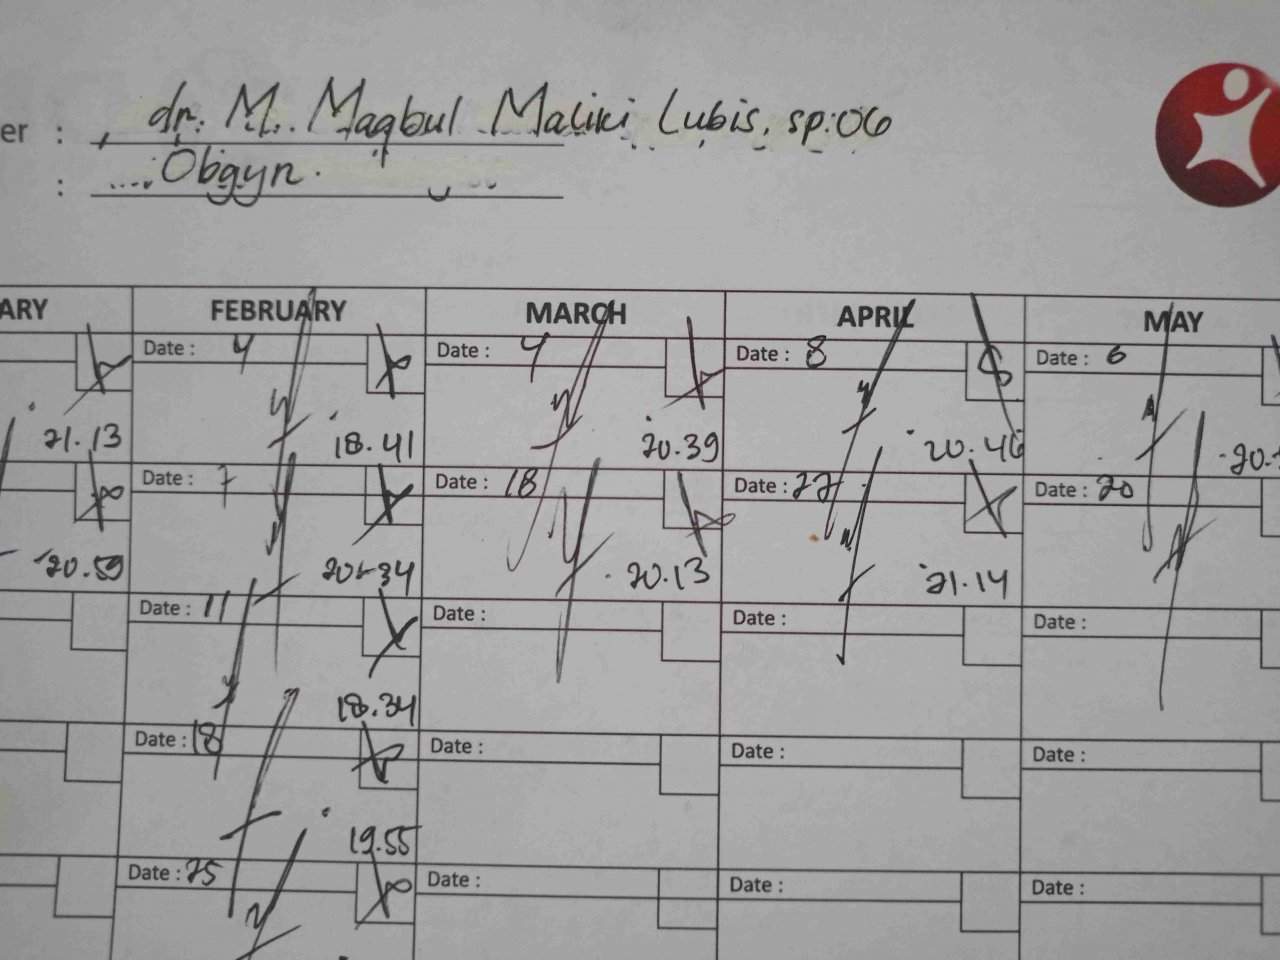 er : dr. M. Maqbul Maliki Lubis, sp:OG
: Obgyn.
ARY FEBRUARY MARCH APRIL MAY
Date : 4 Date : 4 Date : 8 Date : 6
21.13 18.41 20.39 20.46 20.
Date : 7 Date : 18 Date : 22 Date : 20
20.59 20.34 20.13 21.14
Date : 11 Date : Date : Date :
18.34
Date : 18 Date : Date : Date :
19.55
Date : 25 Date : Date : Date :